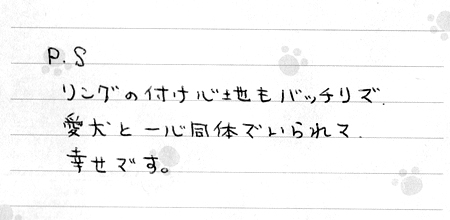 P.S
リングの付け心地もバッチリで、
愛犬と一心同体でいられて、
幸せです。